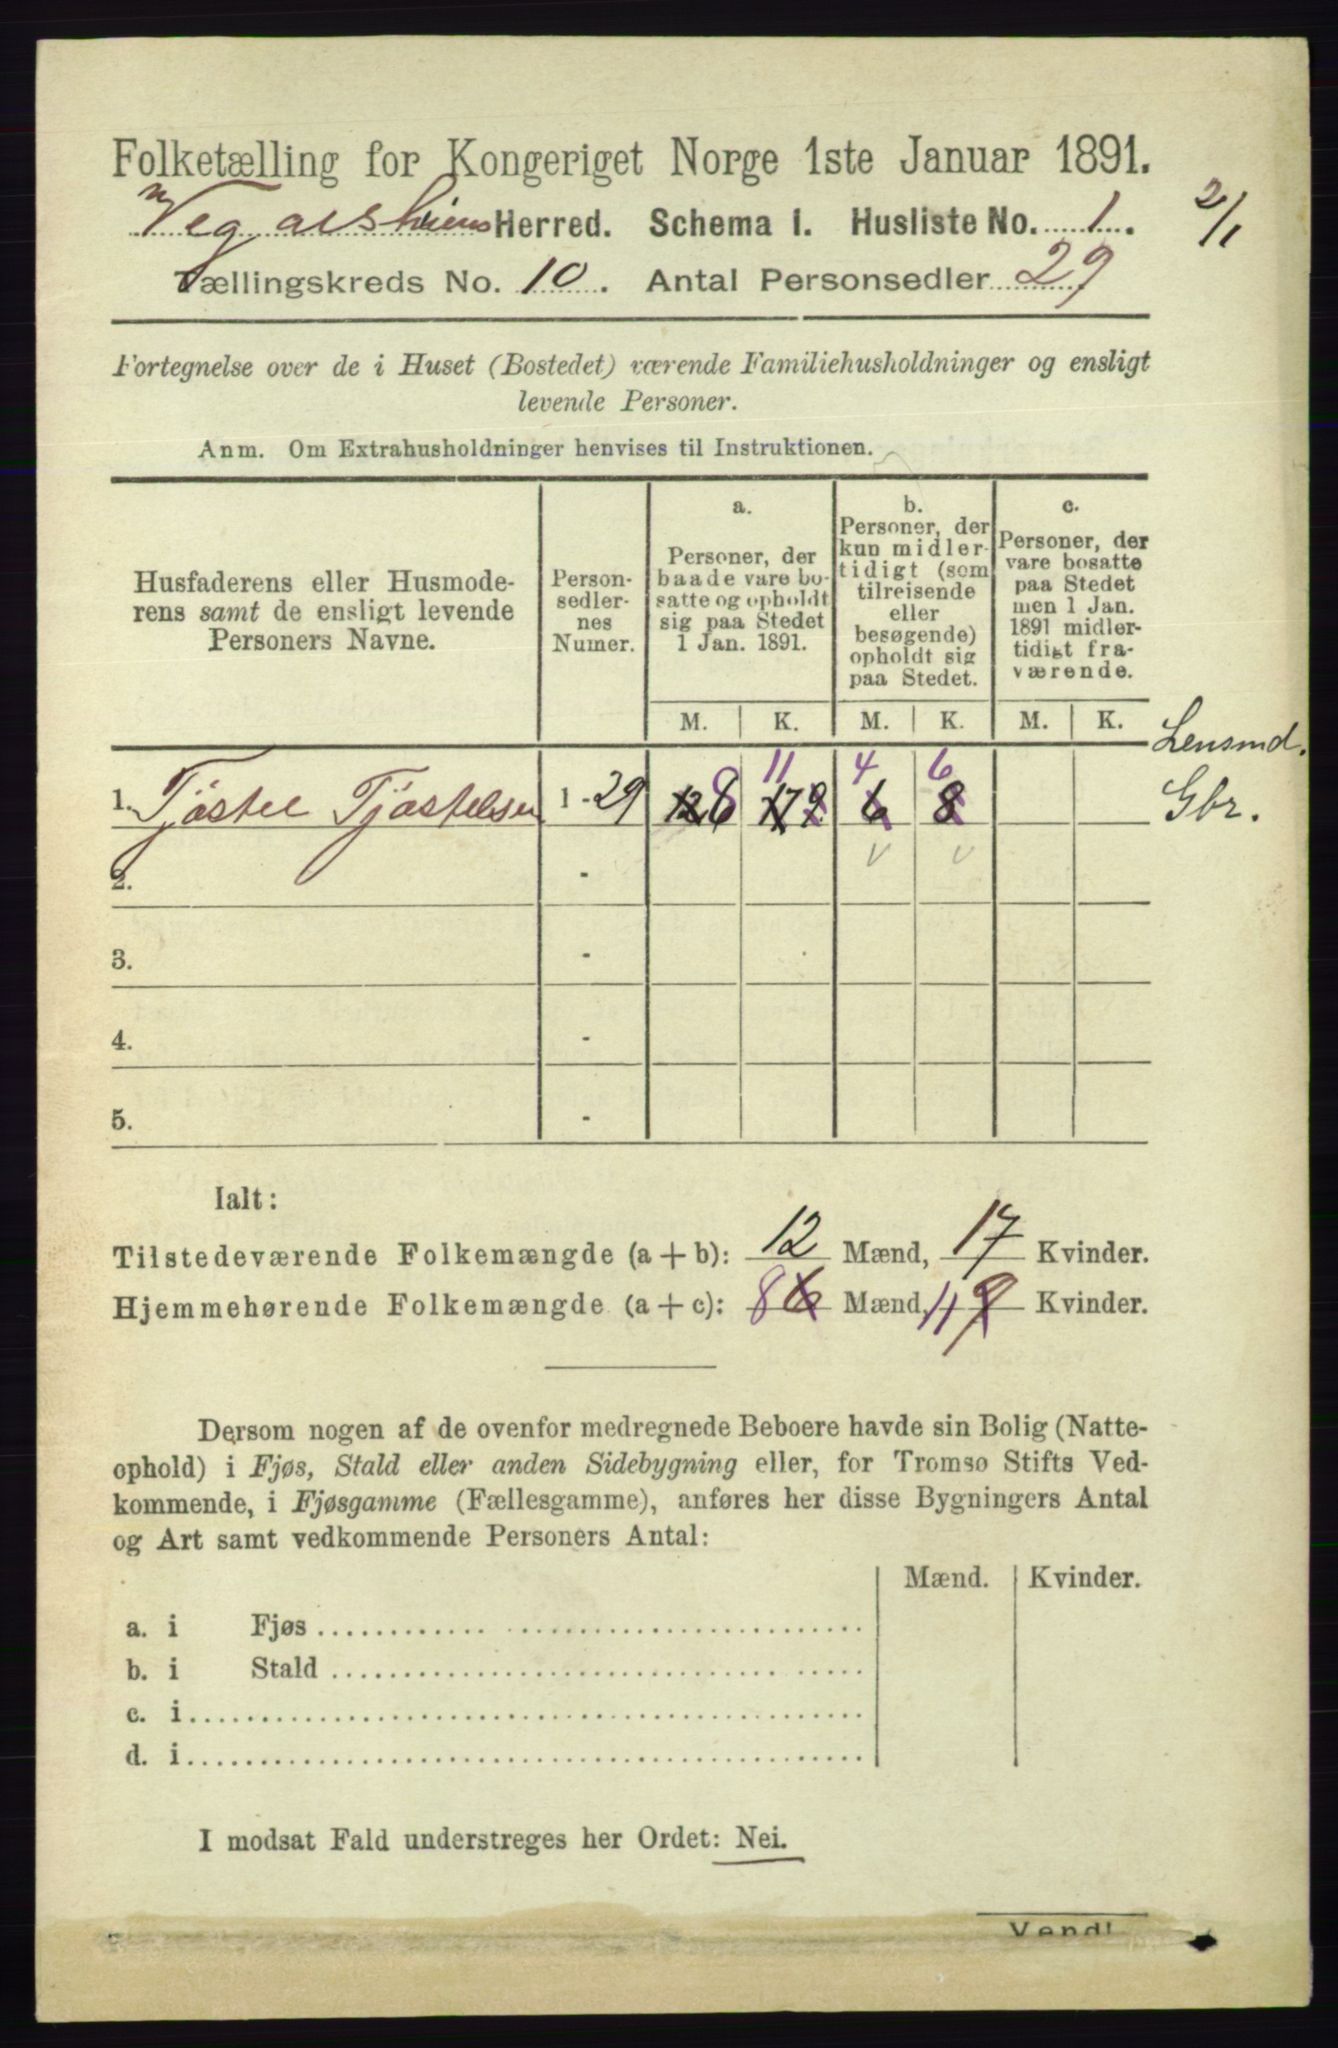 Folketælling for Kongeriget Norge 1ste Januar 1891.
Vegarsheiens Herred. Schema I. Husliste No. 1. 2/1
Tællingskreds No. 10. Antal Personsedler 29
Fortegnelse over de i Huset (Bostedet) værende Familiehusholdninger og ensligt
levende Personer.
Anm. Om Extrahusholdninger henvises til Instruktionen.
Husfaderens eller Husmode-
rens samt de ensligt levende
Personers Navne.
Person-
sedler-
nes
Numer.
a.
Personer, der
baade vare bo-
satte og opholdt
sig paa Stedet
1 Jan. 1891.
b.
Personer, der
kun midler-
tidigt (som
tilreisende
eller
besøgende)
opholdt sig
paa Stedet.
c.
Personer, der
vare bosatte
paa Stedet
men 1 Jan.
1891 midler-
tidigt fra-
værende.
M. K. M. K. M. K.
Lensmd.
11 4 6
1. Tjøstel Tjøstelsen 1 - 29 12 6 8 17 9 6 8 Gbr.
2. -
3. -
4. -
5. -
Ialt:
Tilstedeværende Folkemængde (a + b): 12 Mænd, 17 Kvinder.
Hjemmehørende Folkemængde (a + c): 8 6 Mænd, 11 9 Kvinder.
Dersom nogen af de ovenfor medregnede Beboere havde sin Bolig (Natte-
ophold) i Fjøs, Stald eller anden Sidebygning eller, for Tromsø Stifts Ved-
kommende, i Fjøsgamme (Fællesgamme), anføres her disse Bygningers Antal
og Art samt vedkommende Personers Antal:
Mænd. Kvinder.
a. i Fjøs
b. i Stald
c. i
d. i
I modsat Fald understreges her Ordet: Nei.
Vend!